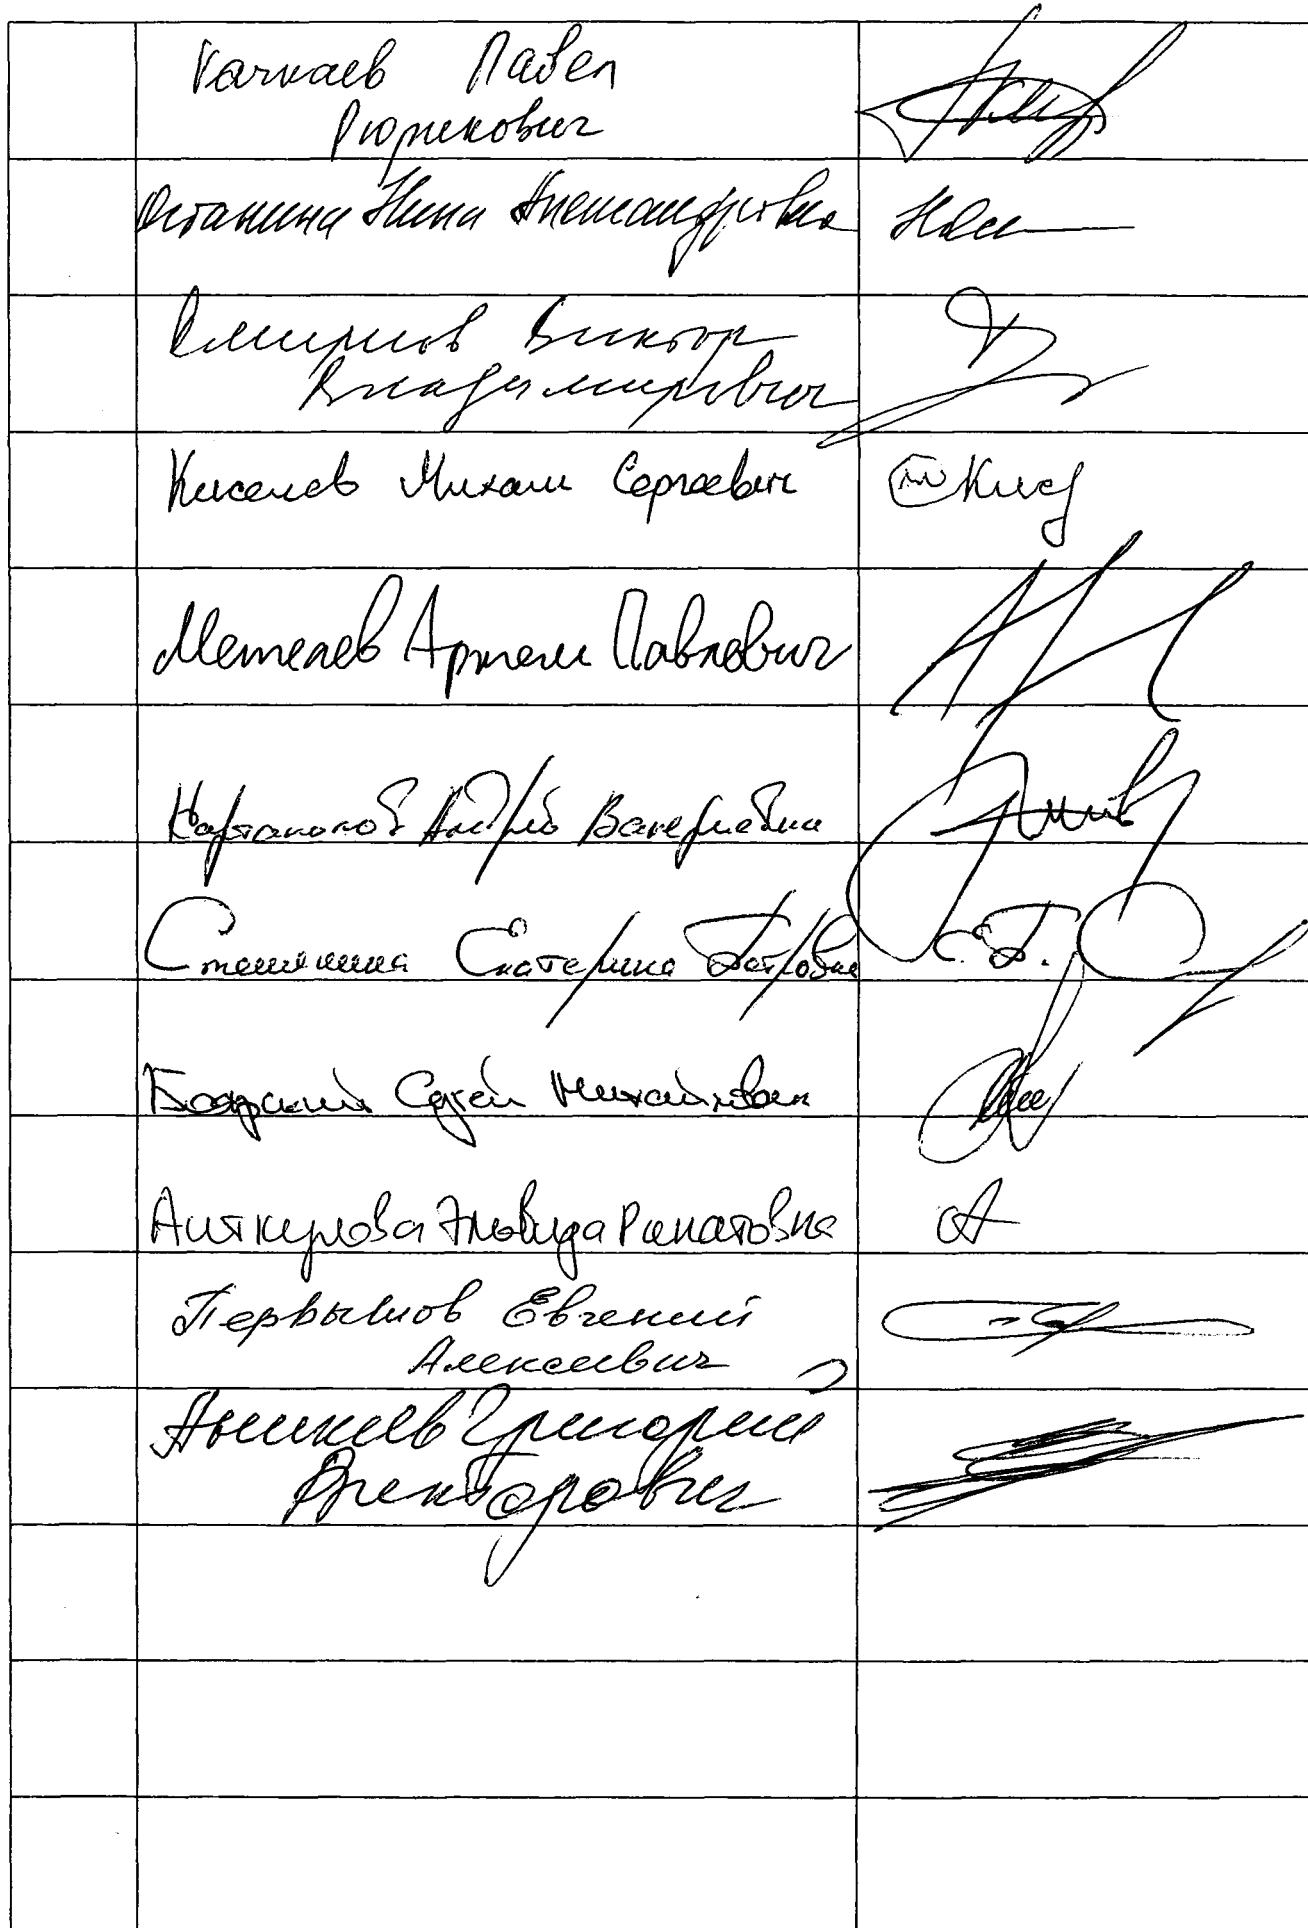 Качкаев Павел
Рюрикович
Останина Нина Александровна
Смирнов Виктор
Владимирович
Киселев Михаил Сергеевич
Кис
Метелев Артем Павлович
Картаполов Андрей Валериевич
Стенякина Екатерина Петровна
Боярский Сергей Михайлович
Аиткулова Эльвира Ринатовна
Первышов Евгений
Алексеевич
Аникеев Григорий
Викторович